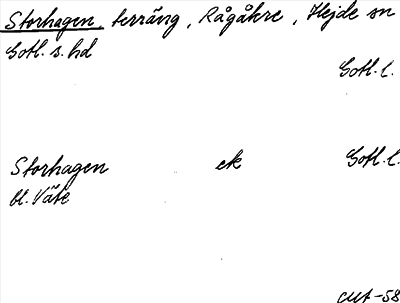 Storhagen, terräng, Rågåkre, Hejde sn
Gotl. s. hd
Gotl. l.
Storhagen ek Gotl. l.
bl. Väte
CMt -58